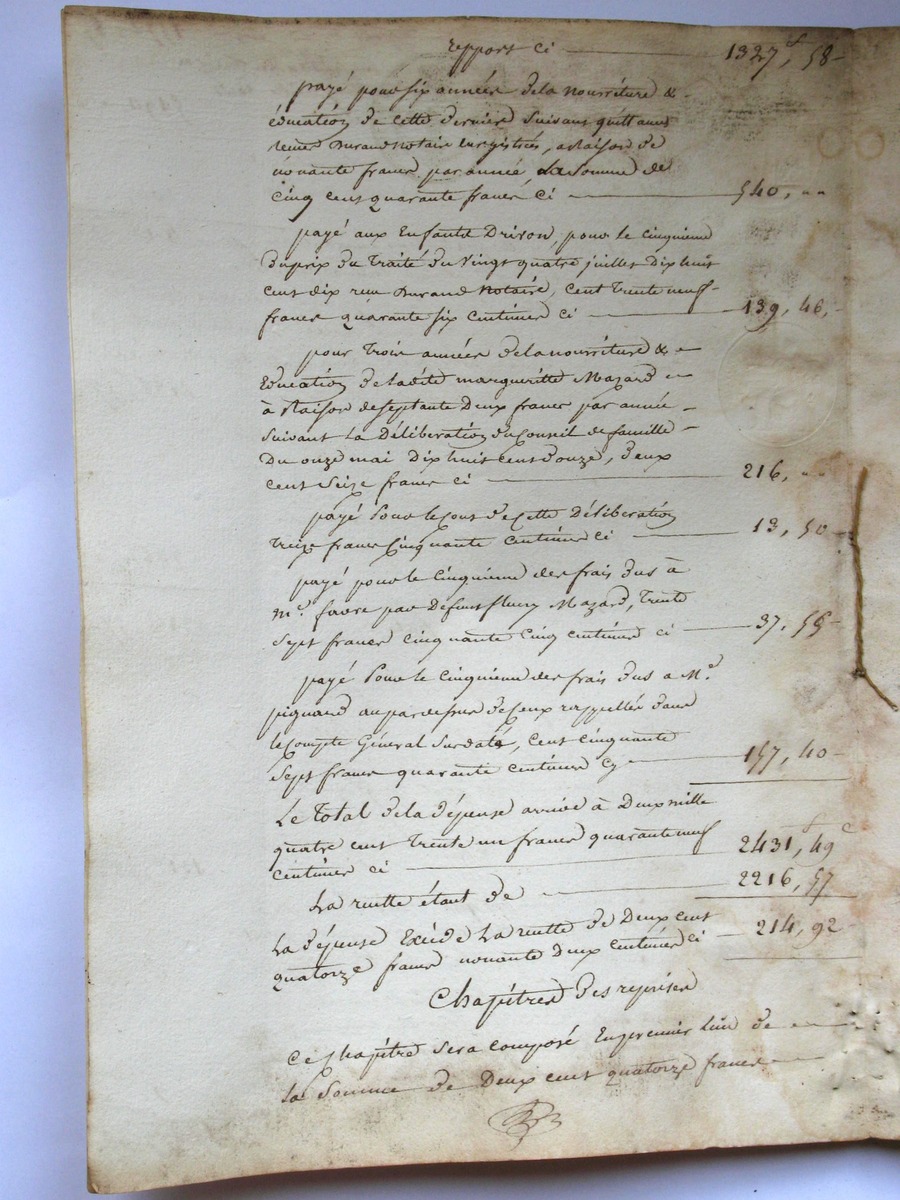 repport ci 1327 f, 58
payé pour six années de la nourriture &
éducation de cette derniere suivant quittances
Durand notaire enregistrées, a raison de
nonante francs par année, la somme de
cinq cent quarante francs ci 540, ""
payé aux Enfants Drivon, pour le cinquieme
du prix du Traité du vingt quatre juillet Dix huit
cent dix reçu Durand Notaire, cent trente neuf
francs quarante six centimes ci 139, 46,
pour Trois années de la nourriture &
Education de ladite margueritte Mazard
à Raison de septante Deux francs par année
suivant la Déliberation du Conseil de famille
Du onze mai Dix huit cent douze, deux
cent seize francs ci 216, ""
payé Pour le Cout de Cette Déliberation
treize francs Cinquante Centimes ci 13, 50
payé pour le Cinquieme des frais dus à
Me. favre par Defunt fleury Mazard, trente
sept francs cinquante cinq centimes ci 37, 55
payé Pour le Cinquieme des frais dus a Me.
pignard au par dessus de Ceux rappellés dans
le Compte Général Susdaté, cent cinquante
sept francs quarante centimes cy 157, 40
Le Total de la dépense arrive à Deux mille
quatre cent Trente un francs quarante neuf
centimes ci 2431 f, 49 c
La recette étant de 2216, 57
La dépense Excéde La recette de Deux cent
quatorze francs nonante deux centimes ci 214, 92
Chapitre des reprises
Ce Chapitre sera composé En premier lieu de
la Somme de Deux cent quatorze francs